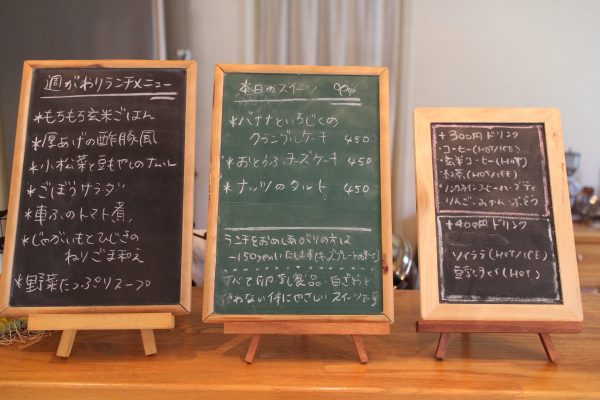 週がわりランチメニュー
*もちもち玄米ごはん
*厚あげの酢豚風
*小松菜と豆もやしのナムル
*ごぼうサラダ
*車ふのトマト煮
*じゃがいもとひじきの
ねりごま和え
*野菜たっぷりスープ
本日のスイーツ
*バナナといちじくの
クランブルケーキ 450
*おとうふチーズケーキ 450
*ナッツのタルト 450
ランチをおめしあがりの方は
-150yenいたします
すべて卵・乳製品・白ざとう
使わない体にやさしいスイーツです
+300円ドリンク
・コーヒー(HOT/ICE)
・玄米コーヒー(HOT)
・紅茶(HOT/ICE)
・りんご・みかん・ぶどう
+400円ドリンク
ソイラテ(HOT/ICE)
豆乳チャイ(HOT)